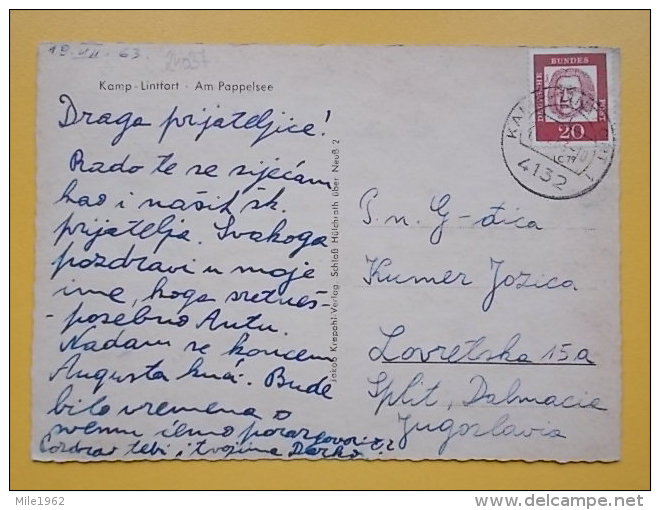 19. VII. 63.
Kamp-Lintfort · Am Pappelsee
Draga prijateljice!
Rado te se sjećam
kao i naših šk.
prijatelja. Svakoga
pozdravi u moje
ime, koga sretneš-
-posebno Antu.
Nadam se koncem
Augusta kući. Bude
bilo vremena o
svemu ćemo porazgovoriti
Pozdrav tebi i tvojima Darko
Jakob Krepohl-Verlag, Schloß Hülchrath über Neuß 2
DEUTSCHE BUNDES POST
20
4132
P. n. G-đica
Kumer Jozica
Lovretska 15a
Split, Dalmacia
Jugoslavia
Mile1962